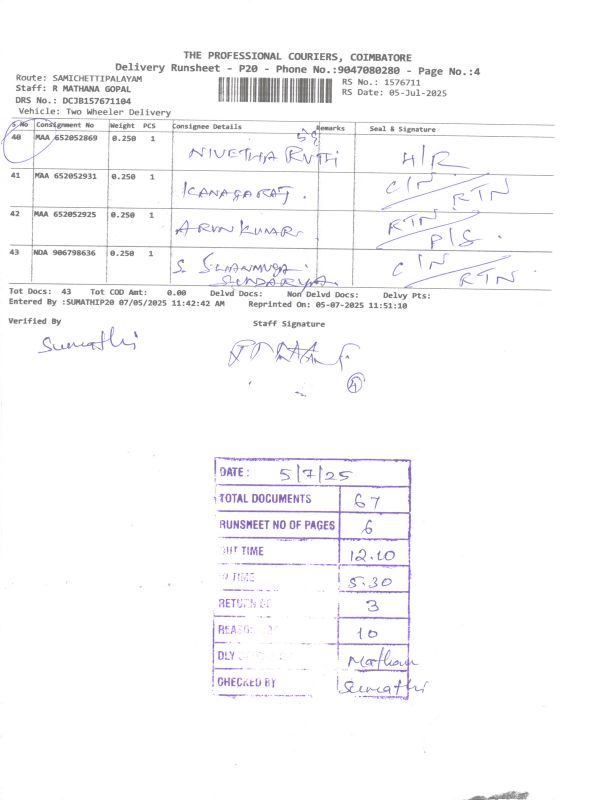 THE PROFESSIONAL COURIERS, COIMBATORE
Delivery Runsheet - P20 - Phone No.:9047080280 - Page No.:4
Route: SAMICHETTIPALAYAM RS No.: 1576711
Staff: R MATHANA GOPAL RS Date: 05-Jul-2025
DRS No.: DCJB157671104
Vehicle: Two Wheeler Delivery
S No Consignment No Weight PCS Consignee Details Remarks Seal & Signature
40 MAA 652052869 0.250 1 NIVETHA RUTHI H/R
41 MAA 652052931 0.250 1 KANAGARAJ. C/N RTN
42 MAA 652052925 0.250 1 ARUN KUMAR RTN P/S.
43 NDA 906798636 0.250 1 S. SHANMUGA C/N RTN
SUNDARYA.
Tot Docs: 43 Tot COD Amt: 0.00 Delvd Docs: Non Delvd Docs: Delvy Pts:
Entered By :SUMATHIP20 07/05/2025 11:42:42 AM Reprinted On: 05-07-2025 11:51:10
Verified By Staff Signature
Sumathi
4
DATE: 5/7/25
TOTAL DOCUMENTS 67
RUNSHEET NO OF PAGES 6
OUT TIME 12.10
IN TIME 5.30
RETURN 3
10
DLY Mathan
CHECKED BY Sumathi